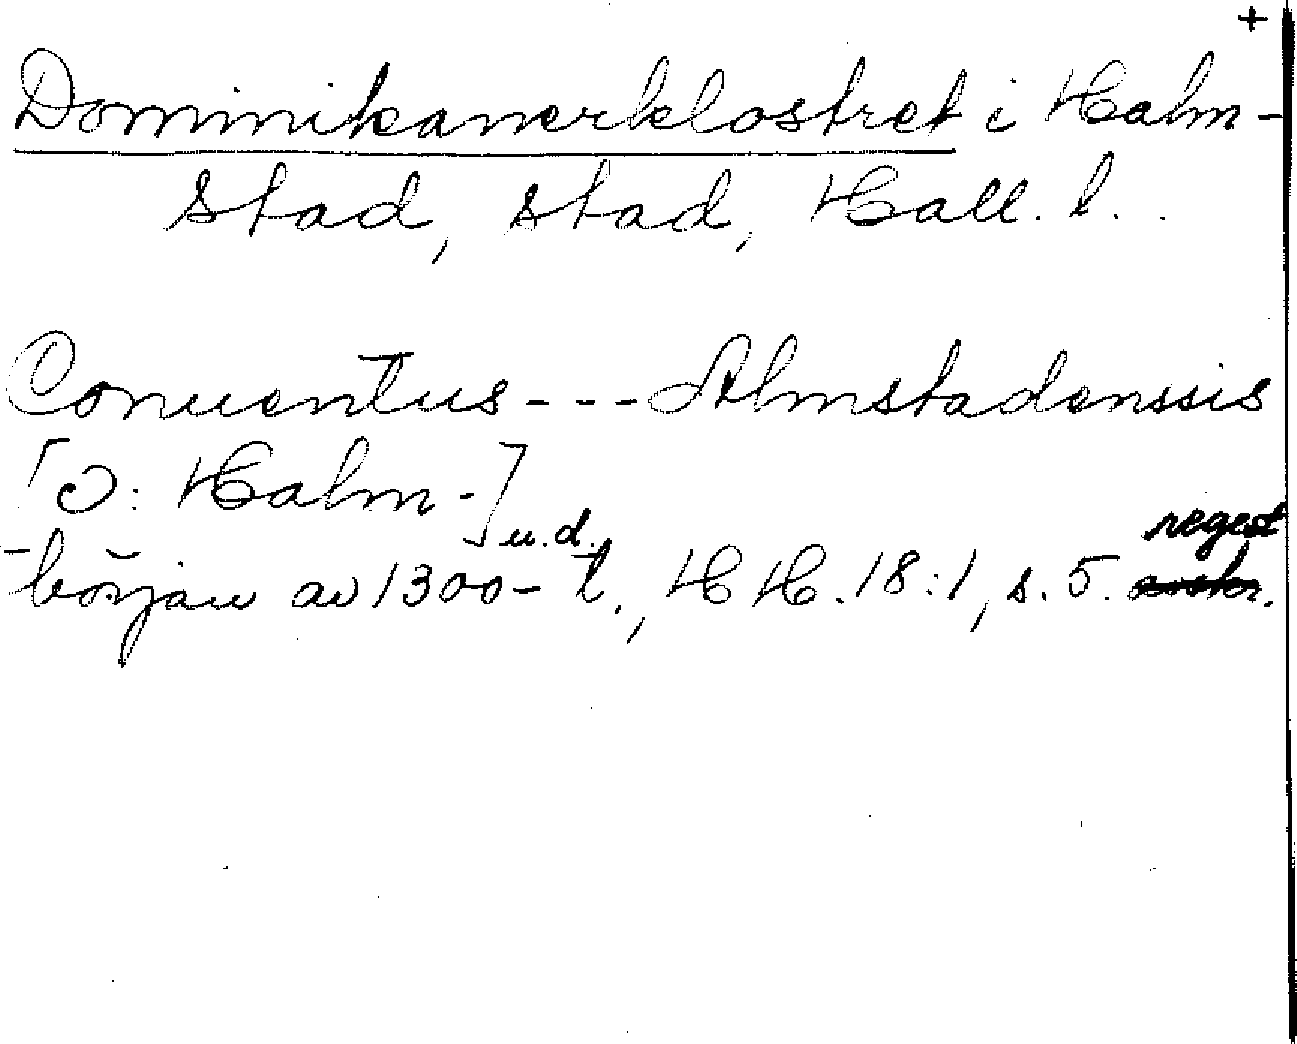 +
Dominikanerklostret i Halm-
stad, stad, Hall. l.
Conuentus --- Almstadenssis
[ɔ: Halm-]
u.d. regest
början av 1300-t., HH.18:1, s. 5. avskr.